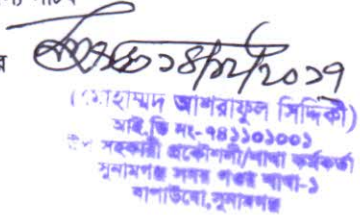 ১৪/১২/২০১৭
(মোহাম্মদ আশরাফুল সিদ্দিকী)
আই,ডি নং-৭৪১১০১০০১
উপ সহকারী প্রকৌশলী/শাখা কর্মকর্তা
সুনামগঞ্জ সদর পওর শাখা-১
বাপাউবো,সুনামগঞ্জ